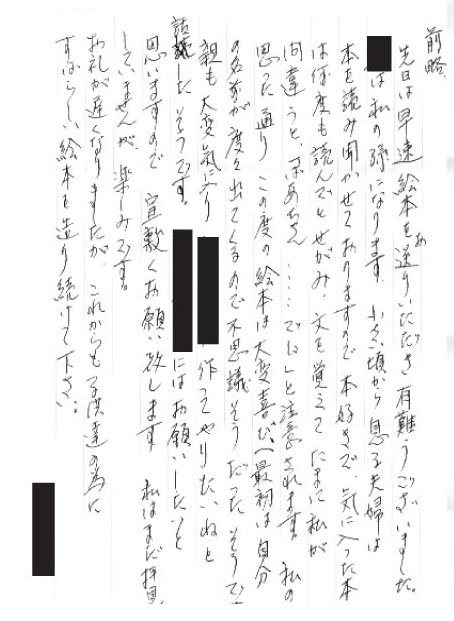 前略
先日は早速絵本をお送りいただき有難うございました。
は私の孫になります。小さい頃から息子夫婦は
本を読み聞かせておりますので本好きで、気に入った本
は何度も読んでとせがみ、文を覚えて たまに私が
間違うと、ばあちゃん……でしょと注意されます。私の
思った通り この度の絵本は大変喜び、(最初は自分
の名前が度々出てくるので不思議そうだったそうです
親も大変気に入り 作ってやりたいねと
話したそうです。 にはお願いしたいと
思いますので 宜敷くお願い致します 私はまだ拝見
していませんが、楽しみです。
お礼が遅くなりましたが、これからも子供達の為に
すばらしい絵本を造り続けて下さい。